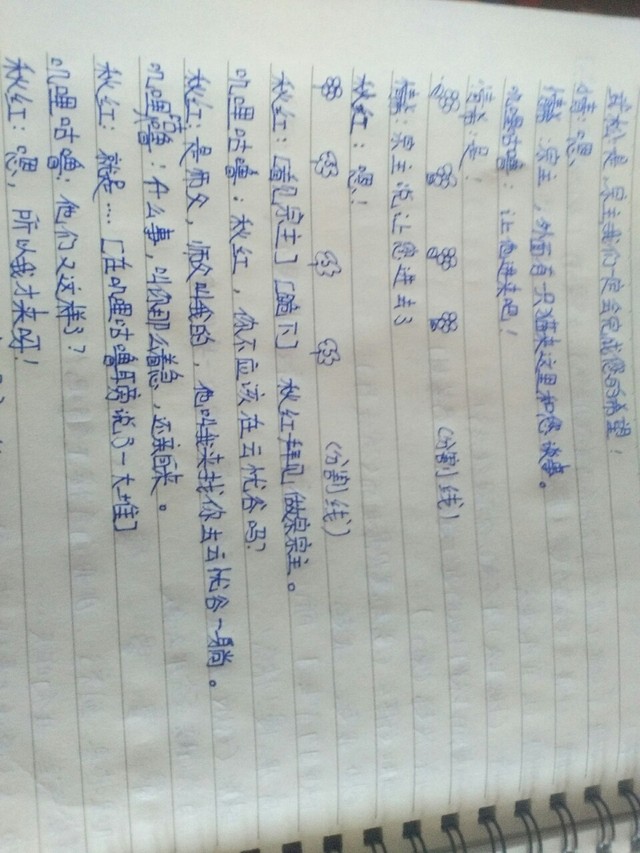 是,宗主我们一定会完成您的希望!
情:嗯
情:宗主,外面有一只猫来这里和您谈事。
叽哩咕噜:让他进来吧!
情:是!
(分割线)
情:宗主说让您进去了
秋红:嗯!
(分割线)
秋红:[看见宗主][跪下] 秋红拜见 宗主。
叽哩咕噜:秋红,你不应该在云忧谷吗?
秋红:是师父,师父叫我的,他叫我来找你去云忧谷一趟。
叽哩咕噜:什么事,叫你那么着急,还亲自来。
秋红:就是....[在叽哩咕噜耳旁说了一大堆]
叽哩咕噜:他们又这样了?
秋红:嗯,所以我才来呀!